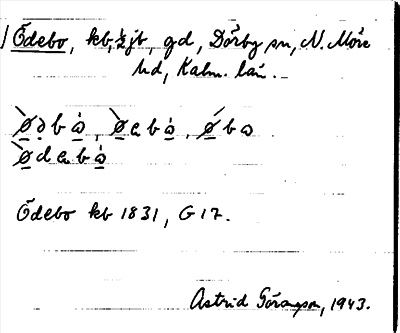 Ödebo, kb, ½ jb, gd, Dörby sn, N. Möre
hd, Kalm. län.
ø̀ḍbȧ, ø̀ebȧ, ǿba
ø̀debȧ
Ödebo kb 1831, G 17.
Astrid Göransson, 1943.